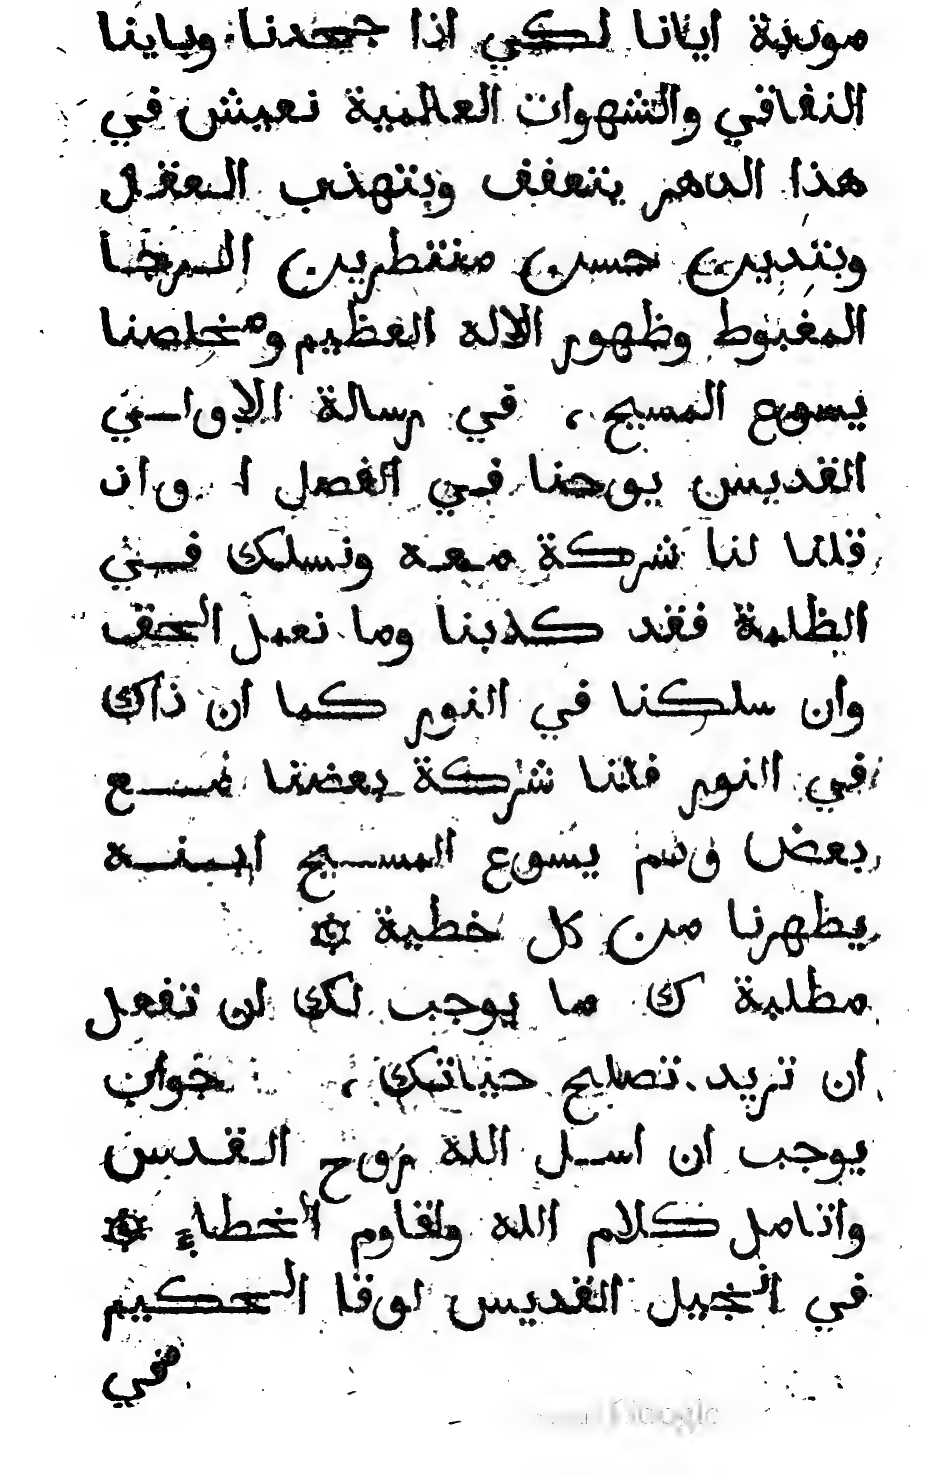 مودبة ايانا لكي اذا جحدنا وباينا
النفاقي والشهوات العالمية نعيش في
هذا الدهر بتعفف وبتهذب العقل
وبتدين حسن منتظرين الرجا
المغبوط وظهور الاله العظيم ومخلصنا
يسوع المسيح ، في رسالة الاولي
القديس يوحنا في الفصل ا وان
قلنا لنا شركة معه ونسلك في
الظلمة فقد كذبنا وما نعمل الحق
وان سلكنا في النور كما ان ذاك
في النور فلنا شركة بعضنا مع
بعض ودم يسوع المسيح ابنه
يطهرنا من كل خطية ۞
مطلبة ك ما يوجب لك ان تفعل
ان تريد تصليح حياتك ، جواب
يوجب ان اسل الله روح القدس
واتامل كلام الله واقاوم الخطاء ۞
في انجيل القديس لوقا الحكيم
في
Google